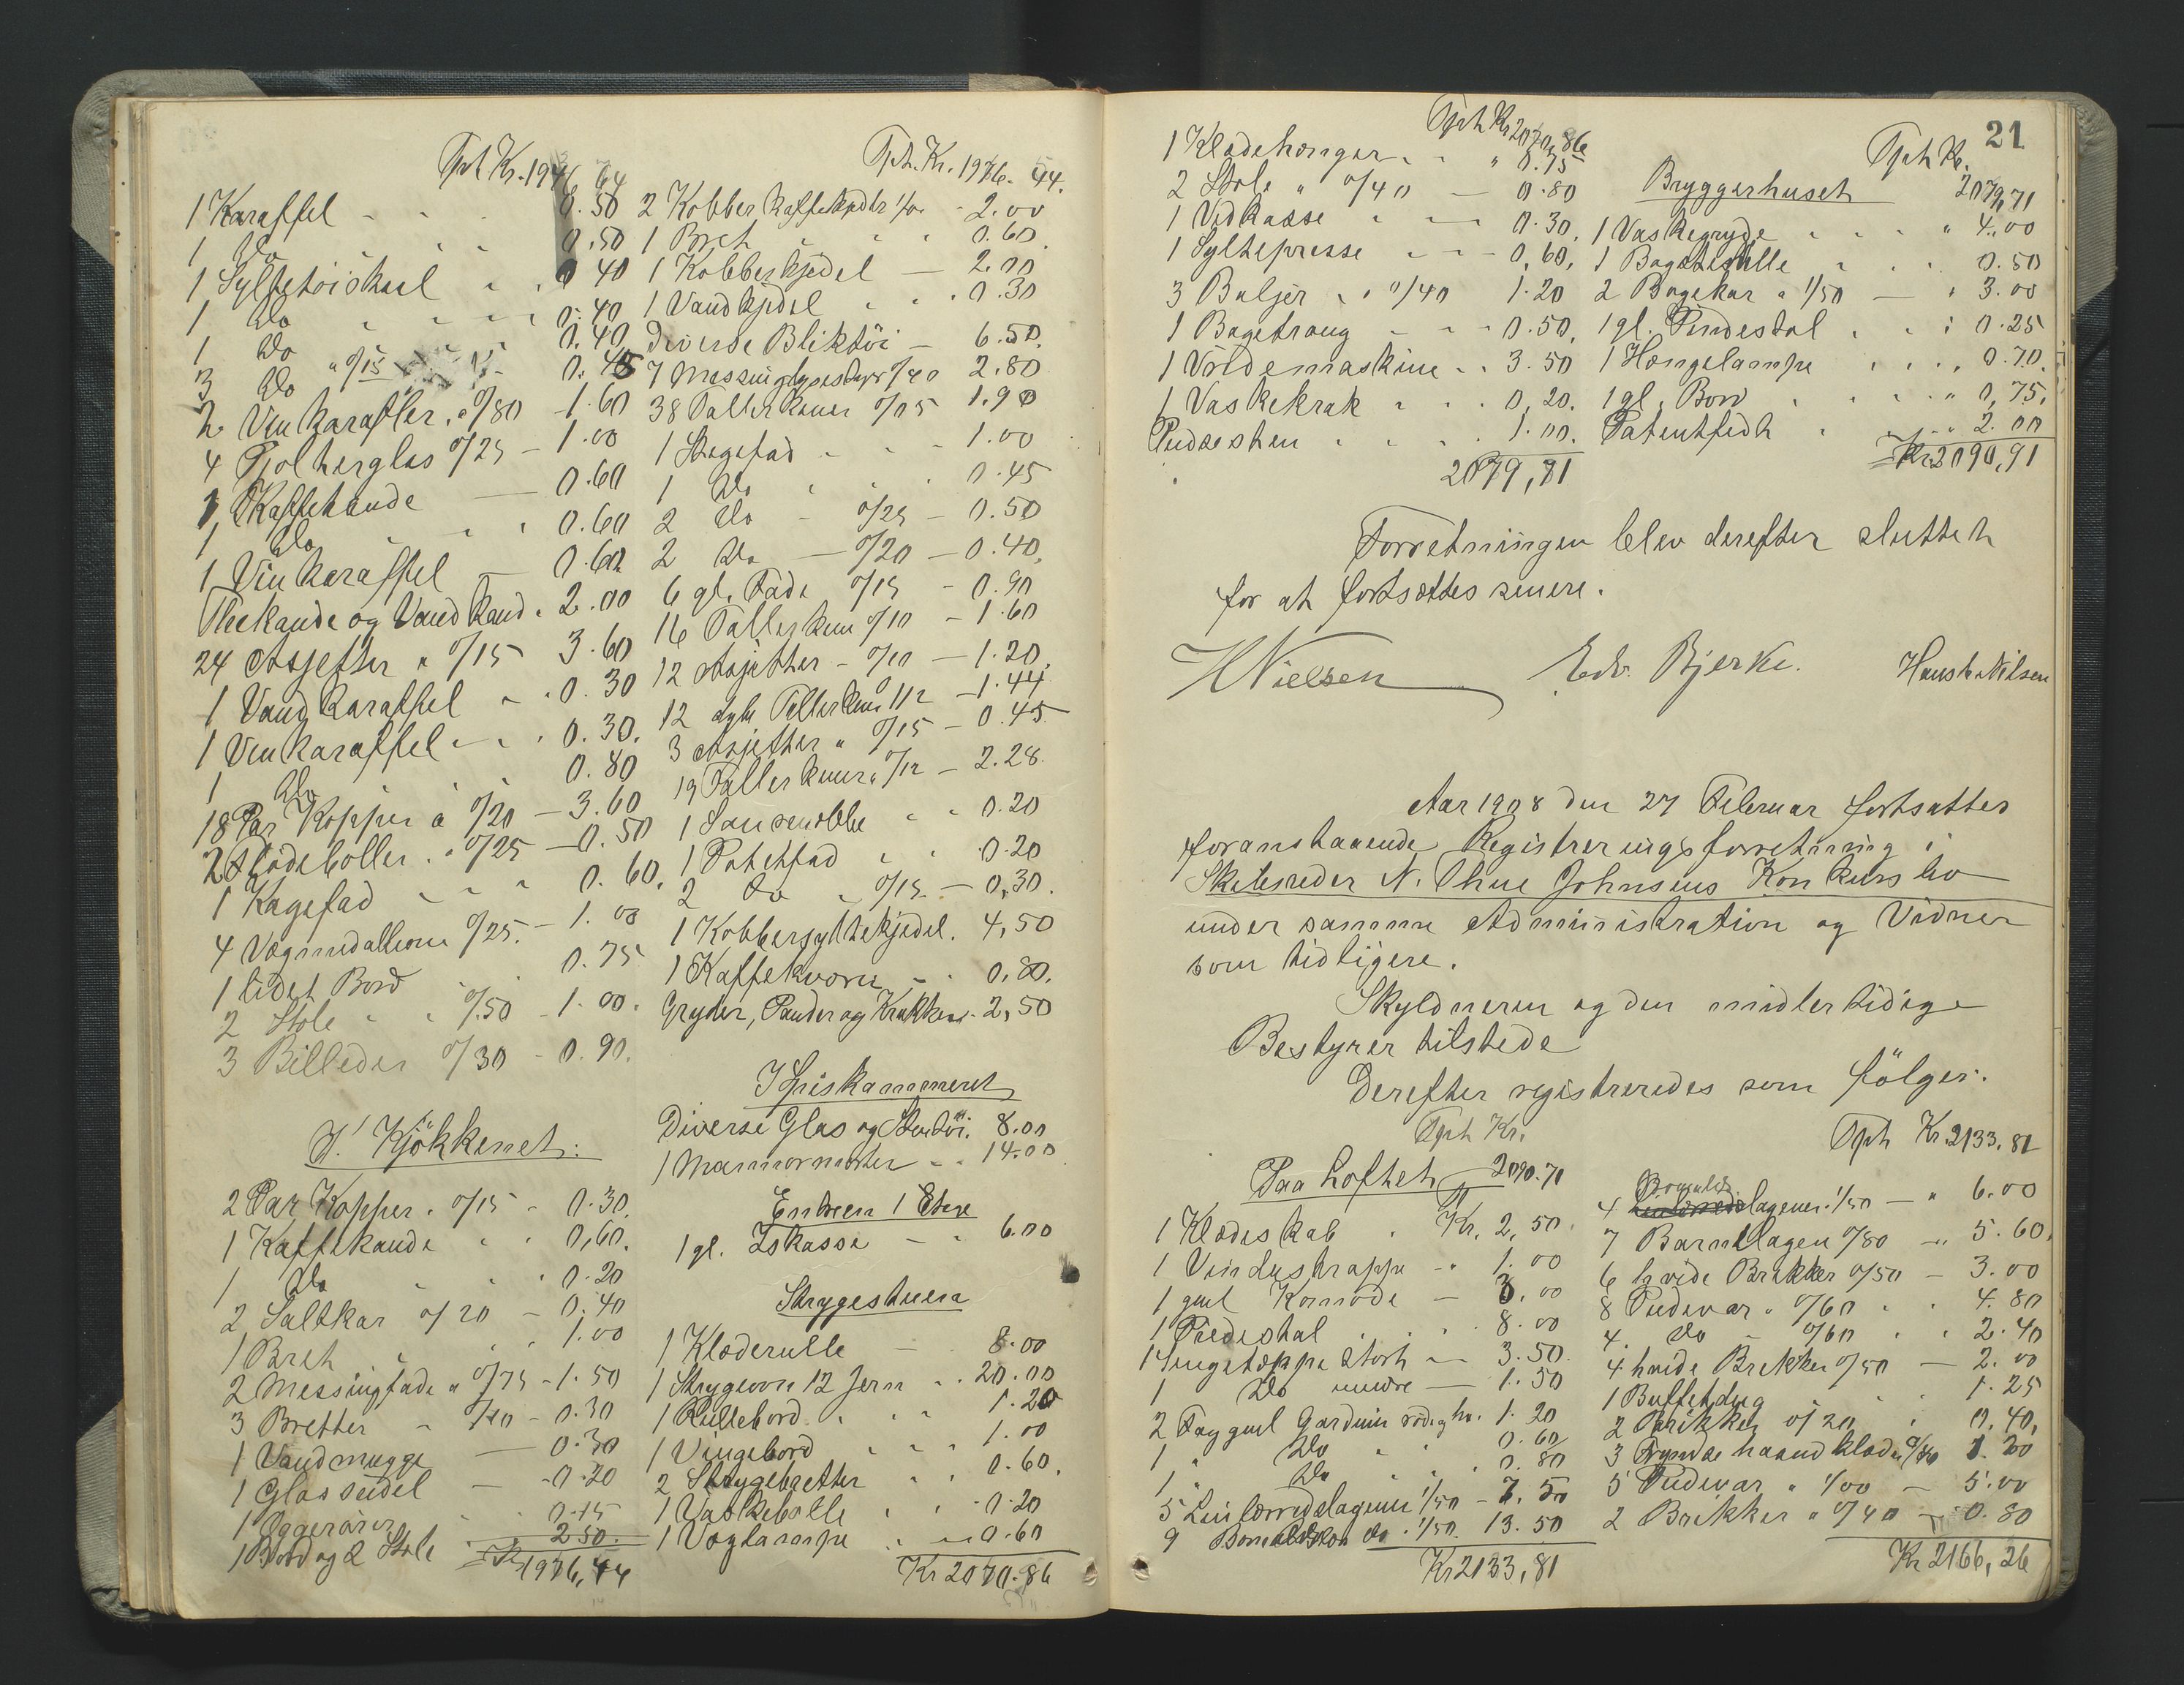 Tpt Kr. 1946 64
1 Karaffel - - 0.50
1 Do " " " 0.50
1 Syltetöiskaal " " 0 40
1 Do " " " 0.40
1 Do 0.40
3 Do " 0/15 0.45
2 Vinkarafler. " 0/80 - 1.60
4 Tjolherglas 0/25 - 1.00
1 Kaffekande — 0.60
1 Do " " 0.60
1 Vinkaraffel — 0.60
Theekande og Vandkand. 2.00
24 Asjetter " 0/15 3.60
1 Vandkaraffel " " 0.30
1 Vinkaraffel " " 0.30.
1 Do " " 0.80
18 Par Kopper a 0/20 — 3.60
2 Flödeboller. " 0/25 — 0.50
1 Kagefad " " " 0.60.
4 Vægmedallions 0/25. - 1.00
1 lidet Bord " " 0.75
2 Stole " " 0/50 - 1.00.
3 Billeder 0/30 - 0.90.
I Kjökkenet:
2 Par Kopper. 0/15 - 0.30.
1 Kaffekande " " 0,60.
1 Do " " 0.20
2 Saltkar 0/20 - 0.40
1 Bret " " 1.00
2 Messingfade " 0/75 - 1.50
3 Bretter - 0/10 - 0.30
1 Vandmugge — 0.30
1 Glasseidel — 0.20
1 Æggerörer " 0.15
1 Bord og 2 Stole 2 50.
Kr 1976,44
Tpt. Kr. 1976. 44.
2 Kobber Kaffekjedler 1/00 - 2.00
1 Bret " " " 0.60.
1 Kobberkjedel — 2.00
1 Vandkjedel " " 0.30
Diverse Bliktöi — 6.50.
7 Messinglysestager 0/40 2.80
38 Tallerkener 0/05 1.90
1 Stegefad " " " 1.00
1 Do " " " 0.45
2 Do - 0/25 — 0.50
2 Do — 0/20 — 0.40.
6 gl. Fade 0/15 - 0.90
16 Tallerkener 0/10 - 1.60
12 Asjetter - 0/10 — 1.20.
12 dybe Tallerkener 0/12 - 1.44
3 Asjetter " 0/15 - 0.45
19 Tallerkener " 0/12 — 2.28.
1 Sausenebbe " " 0.20
1 Potetfad " " 0.20
2 Do " 0/15 — 0,30.
1 Kobbersyltekjedel. 4,50
1 Kaffekvern " " 0,80.
Gryder, Pander og Krukker. 2,50
I Spiskammeret
Diverse Glas og Stentöi. 8.00
1 Marmormorter " " 14.00
Entreen 1 Etage
1 gl. Iskasse — " 6.00
Strygestuen
1 Klæderulle — 8.00
1 Strygeovn 12 Jern " " 20.00
1 Rullebord " " 1.20
1 Vingebord " " " 1.00
2 Strygebretter " " 0.60.
1 Vaskebolle " " 0.20
1 Væglampe " " 0.60
Kr 2070.86
21
Tpt Kr 2070,86
1 Klædehænger " " " 0.75
2 Stole " 0/40 — 0.80
1 Vedkasse " " 0.30.
1 Syltepresse - - 0,60.
3 Baljer " " 0/40 1.20
1 Bagetraug - - - 0.50.
1 Vridemaskine " " 3.50
1 Vaskekrak " " " 0,20.
Pudsesten " " " 1.00.
2079,71
Tpt Kr.
Bryggerhuset 2079,71
1 Vaskegryde " " " 4.00
1 Bagstehelle " " 0.50
2 Bagekar " 1/50 — " 3.00
1 gl. Pindestol " " " 0.25
1 Hængelampe " " " 0.70.
1 gl. Bord " " " 0,75.
Patentfedt " " " 2.00
Kr. 2090,91
Forretningen blev derefter sluttet
for at fortsættes senere.
H Nielsen Edv. Bjerke. Hans L. Nilsen
Aar 1908 den 27 Februar fortsattes
foranstaaende Registreringsforretning i
Skibsreder N. Thue Johnsens Konkursbo
under samme Administration og Vidner
som tidligere.
Skyldneren og den midlertidige
Bestyrer tilstede
Derefter registreredes som fölger.
Tpt Kr.
Paa Loftet 2090.71
1 Klædeskab " Kr. 2,50.
1 Vindustrappe - " 1.00
1 gml Komode — 3.00
1 Piedestal " " 8.00
1 Sengetæppe stort — 3.50.
1 Do mindre — 1.50
2 Fag gml Gardiner röd og hv. 1.20
1 " Do " " 0.60
1 " Do " " 0.80
5 Linlærredslagener 1/50 - 7.50
9 Bomulds do. 1/50. 13.50
Kr 2133,81
Tpt Kr. 2133.81
Bomulds
4 lagener. 1/50 — " 6.00
7 Barnelagen 0/80 — " 5.60.
6 hvide Brikker 0/50 — 3.00
8 Pudevar. 0/60 " " 4.80
4. do 0/60 " " 2.40
4 hvide Brikker 0/50 — 2.00
1 Buffetdug " " 1.25
2 Brikker 0/20 " 0,40.
3 Frynse haandklæder 0/40 1.20
5 Pudevar " 1/00 — 5.00
2 Brikker " 0/40 — 0.80
Kr 2166,26